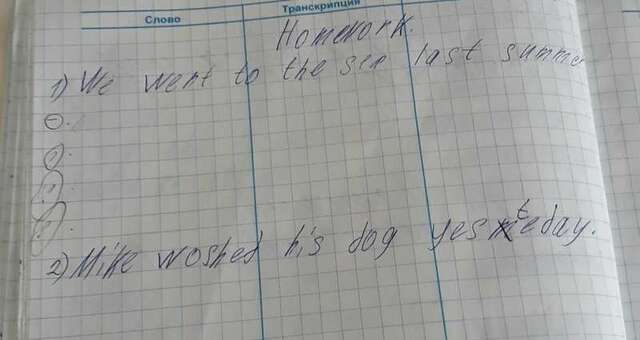 Слово Транскрипция
Homework.
1) We went to the sea last summe
⊖.
?.
?.
?.
2) Mike woshed his dog yesteday.